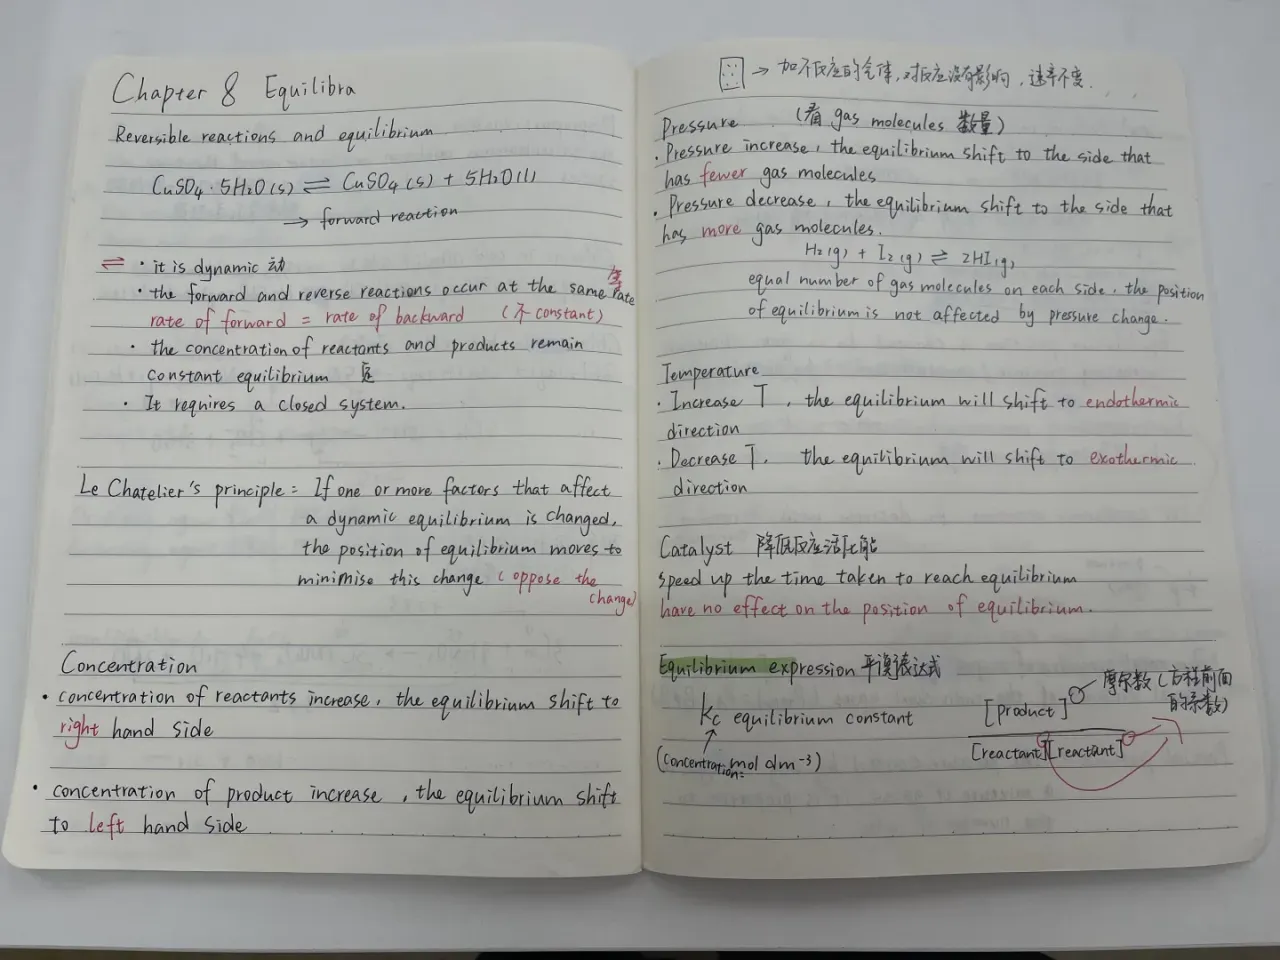 Chapter 8 Equilibra
Reversible reactions and equilibrium
CuSO₄·5H₂O(s) ⇌ CuSO₄(s) + 5H₂O(l)
→ forward reaction
⇌ · it is dynamic 动
· the forward and reverse reactions occur at the same rate
rate of forward = rate of backward (不constant)
· the concentration of reactants and products remain
constant equilibrium
· It requires a closed system.
Le Chatelier's principle = If one or more factors that affect
a dynamic equilibrium is changed,
the position of equilibrium moves to
minimise this change (oppose the
change)
Concentration
· concentration of reactants increase, the equilibrium shift to
right hand side
· concentration of product increase, the equilibrium shift
to left hand side
→ 加不反应的气体,对反应没有影响,速率不变.
Pressure (看 gas molecules 数量)
· Pressure increase, the equilibrium shift to the side that
has fewer gas molecules
· Pressure decrease, the equilibrium shift to the side that
has more gas molecules.
H₂(g) + I₂(g) ⇌ 2HI(g)
equal number of gas molecules on each side, the position
of equilibrium is not affected by pressure change.
Temperature
· Increase T, the equilibrium will shift to endothermic
direction
· Decrease T, the equilibrium will shift to exothermic
direction
Catalyst 降低反应活化能
speed up the time taken to reach equilibrium
have no effect on the position of equilibrium.
Equilibrium expression 平衡表达式
Kc equilibrium constant
(concentration: mol dm⁻³)
[product]
[reactant][reactant]
摩尔数(方程前面
的系数)